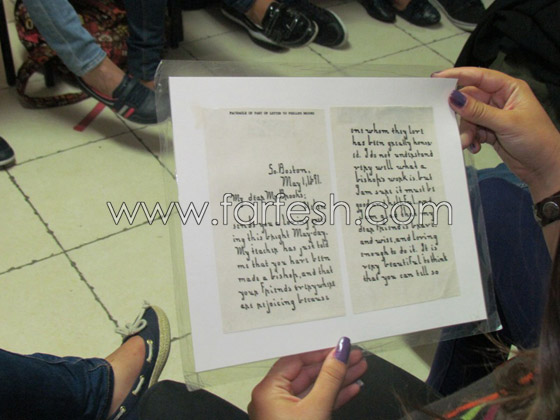 FACSIMILE OF PART OF LETTER TO PHILLIPS BROOKS
So. Boston,
May 1, 1891.
My dear Mr. Brooks:
sends you a
ing this bright May-day.
My teacher has just told
me that you have been
made a bishop, and that
your friends everywhere
are rejoicing because
one whom they love
has been greatly honor-
ed. I do not understand
very well what a
bishop's work is, but
I am sure it must be
good and helpful, and
dear friend is brave,
and wise, and loving
enough to do it. It is
very beautiful to think
that you can tell so
www.farfesh.com